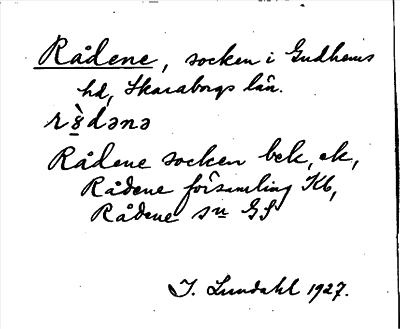 Rådene, socken i Gudhems
hd, Skaraborgs län.
rådənə
Rådene socken bek, ek,
Rådene församling Kb,
Rådene sn GS
I. Lundahl 1927.